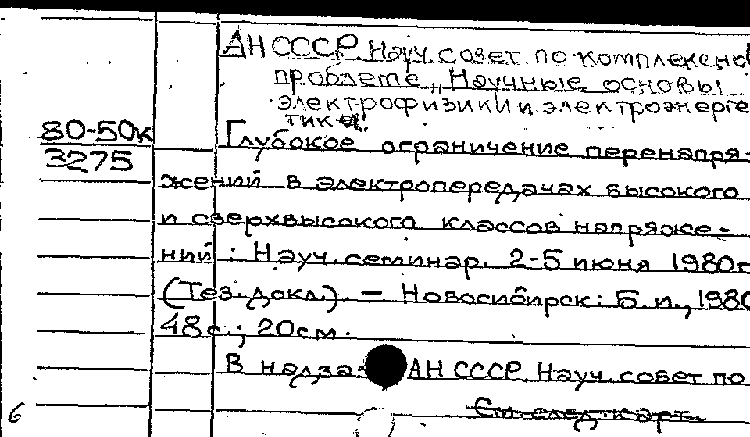 АН СССР. Науч. совет по комплексно
проблеме "Научные основы
электрофизики и электроэнерге
тики"
80-50к
3275
Глубокое ограничение перенапря-
жений в электропередачах высокого
и сверхвысокого классов напряже-
ний: Науч. семинар. 2-5 июня 1980г
(Тез. докл.). — Новосибирск: Б. и., 1980
48с.; 20см.
В надзаг АН СССР. Науч. совет по
См. след. карт.
6